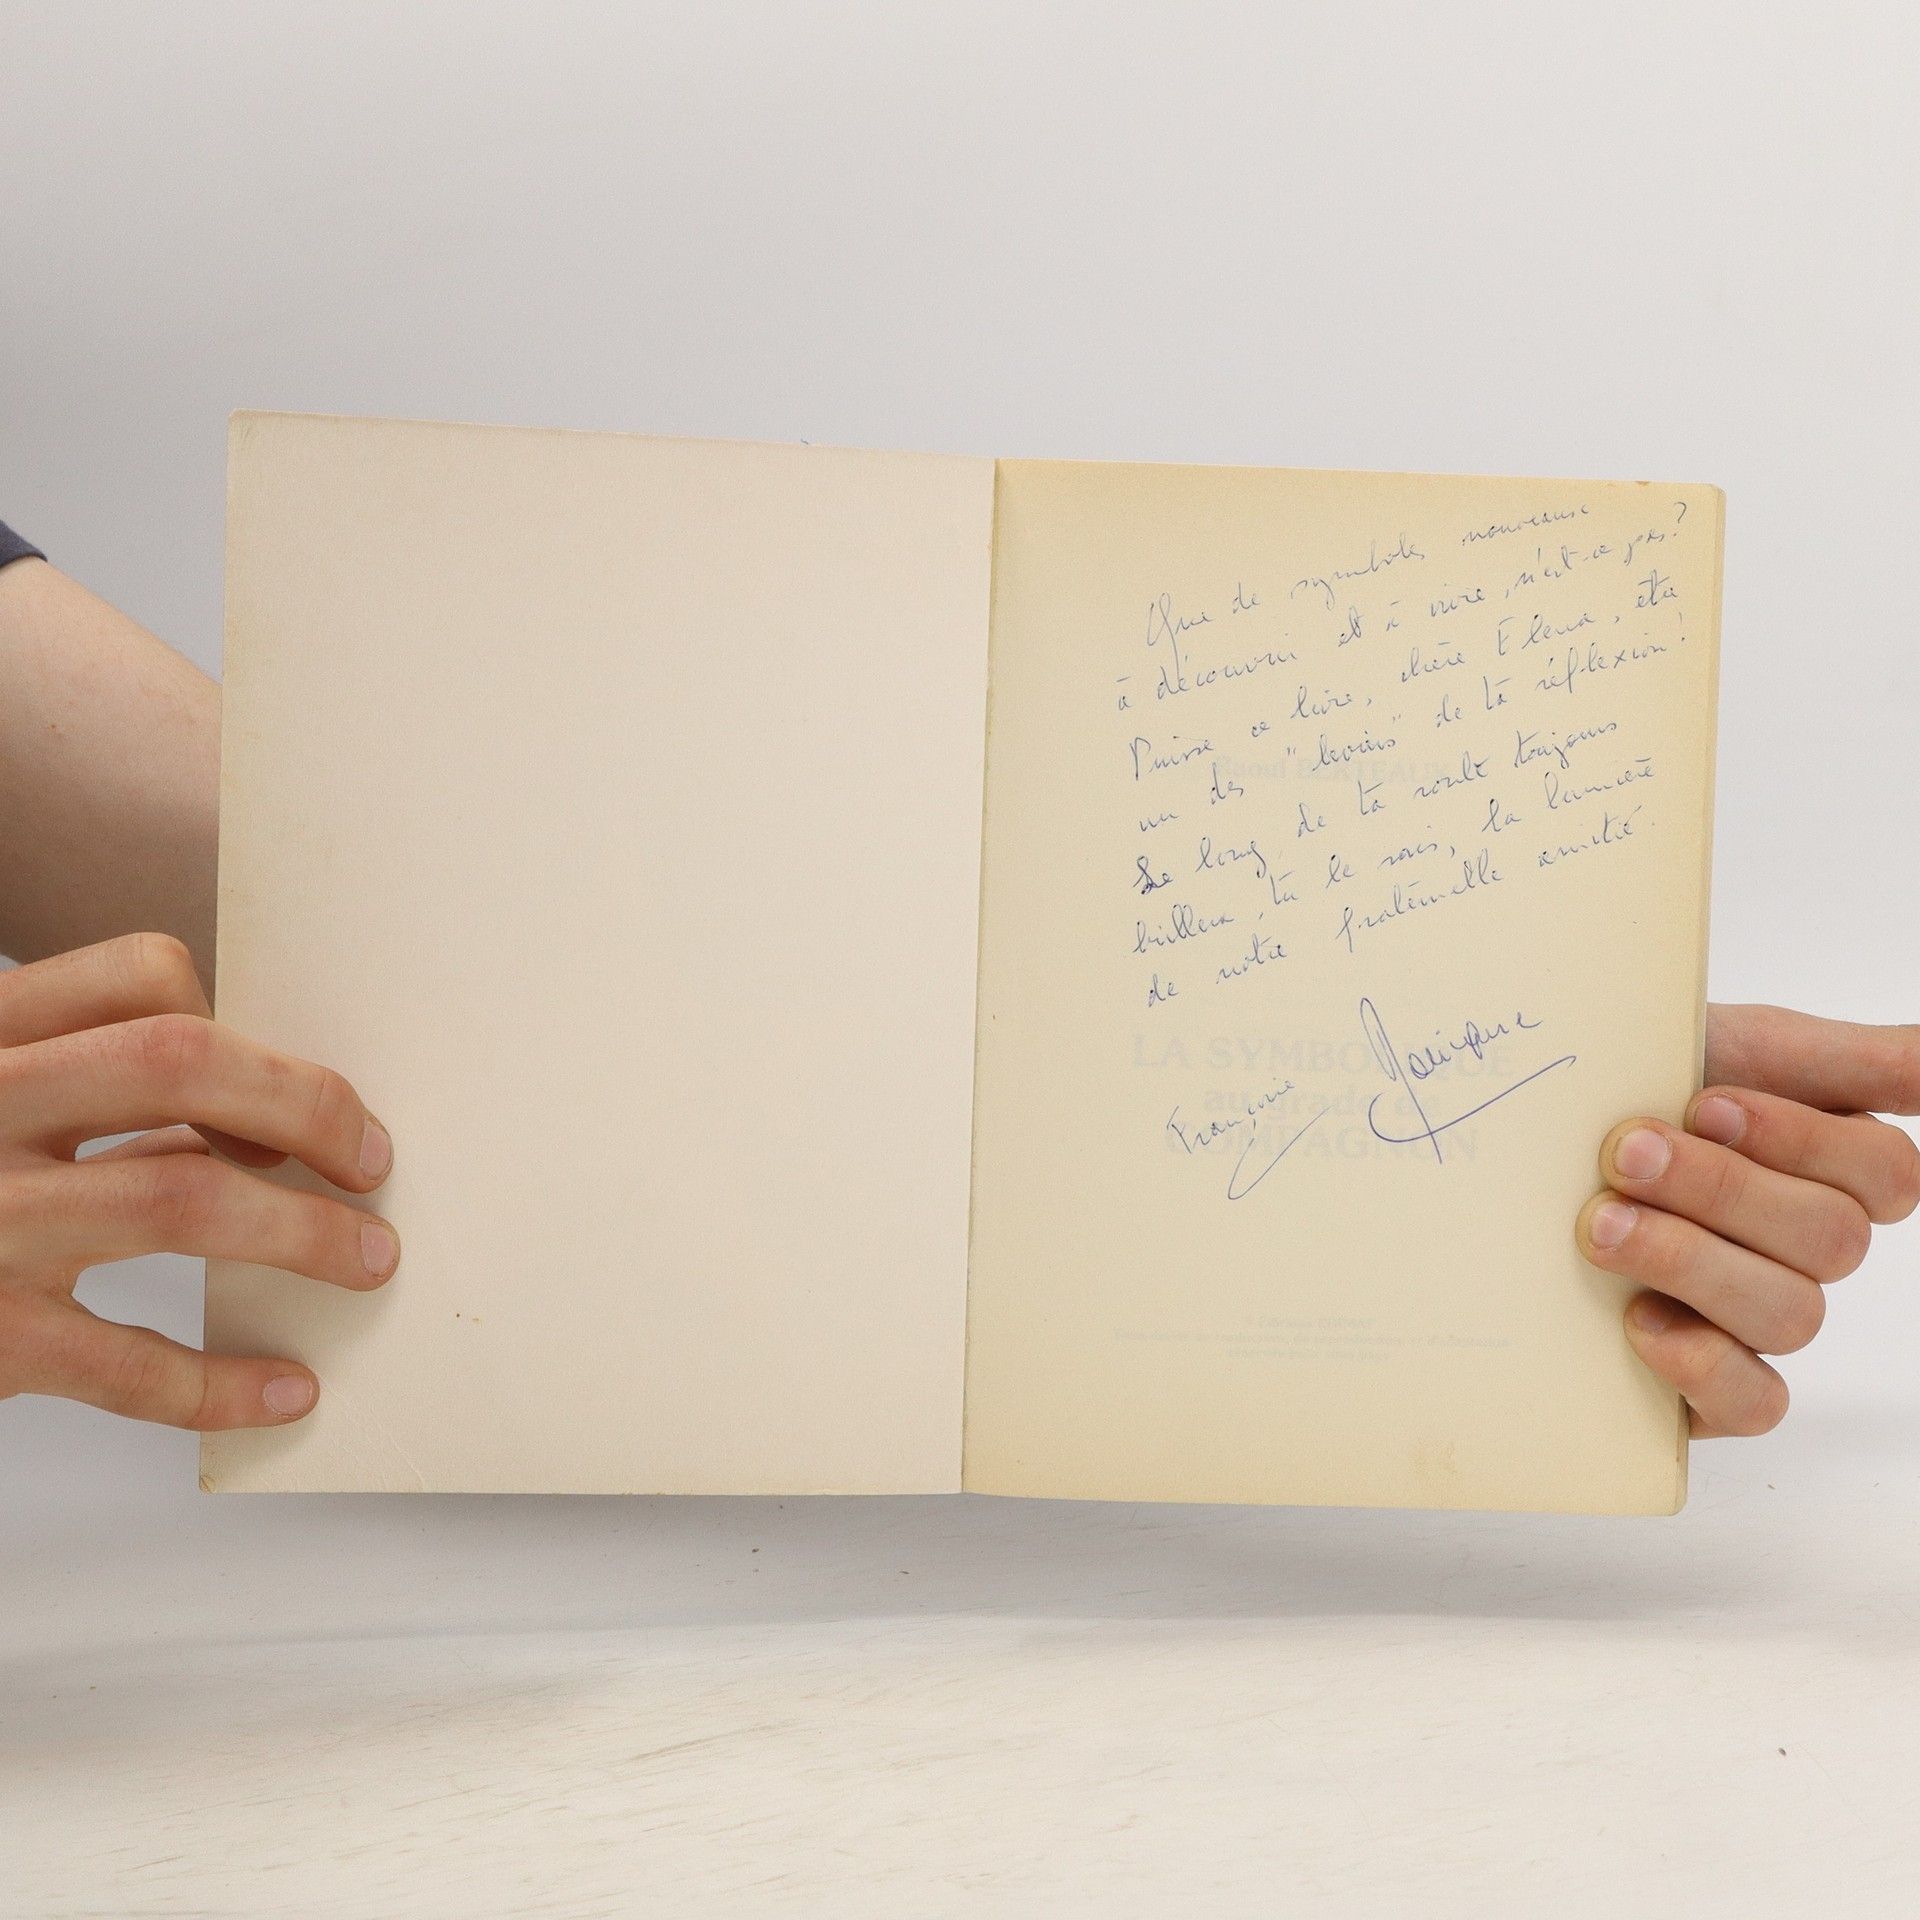 Que de symboles nouveaux
à découvrir et à vivre, n'est-ce pas?
Puisse ce livre, chère Elena, être
un des "levains" de ta réflexion!
Le long de ta route toujours
brillera, tu le sais, la lumière
de notre fraternelle amitié.
Françoise
Raoul BERTEAUX
LA SYMBOLIQUE
au grade de
COMPAGNON